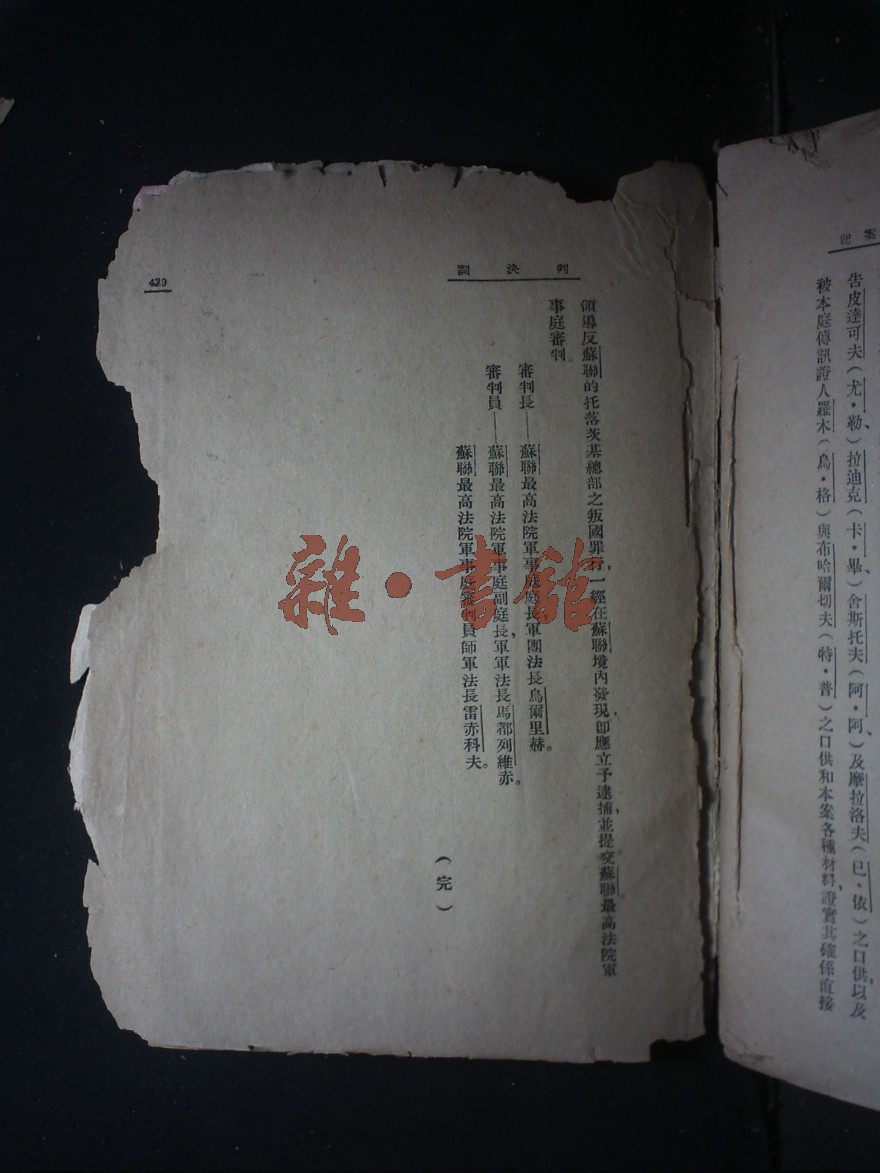 案記
告皮達可夫（尤・勒）、拉迪克（卡・畢）、舍斯托夫（阿・阿）、及摩拉洛夫（已・依）之口供，以及
被本庭傳訊證人羅木（烏・格）與布哈爾切夫（特・普）之口供和本案各種材料，證實其確係直接
判決詞
領導反蘇聯的托落茨基總部之叛國罪行，一經在蘇聯境內發現，即應立予逮捕，並提交蘇聯最高法院軍
事庭審判。
審判長——蘇聯最高法院軍事庭庭長軍團法長烏爾里赫。
審判員——蘇聯最高法院軍事庭副庭長，軍軍法長馬都列維赤。
蘇聯最高法院軍事庭審判員師軍法長雷赤科夫。
（完）
420
雜・書館